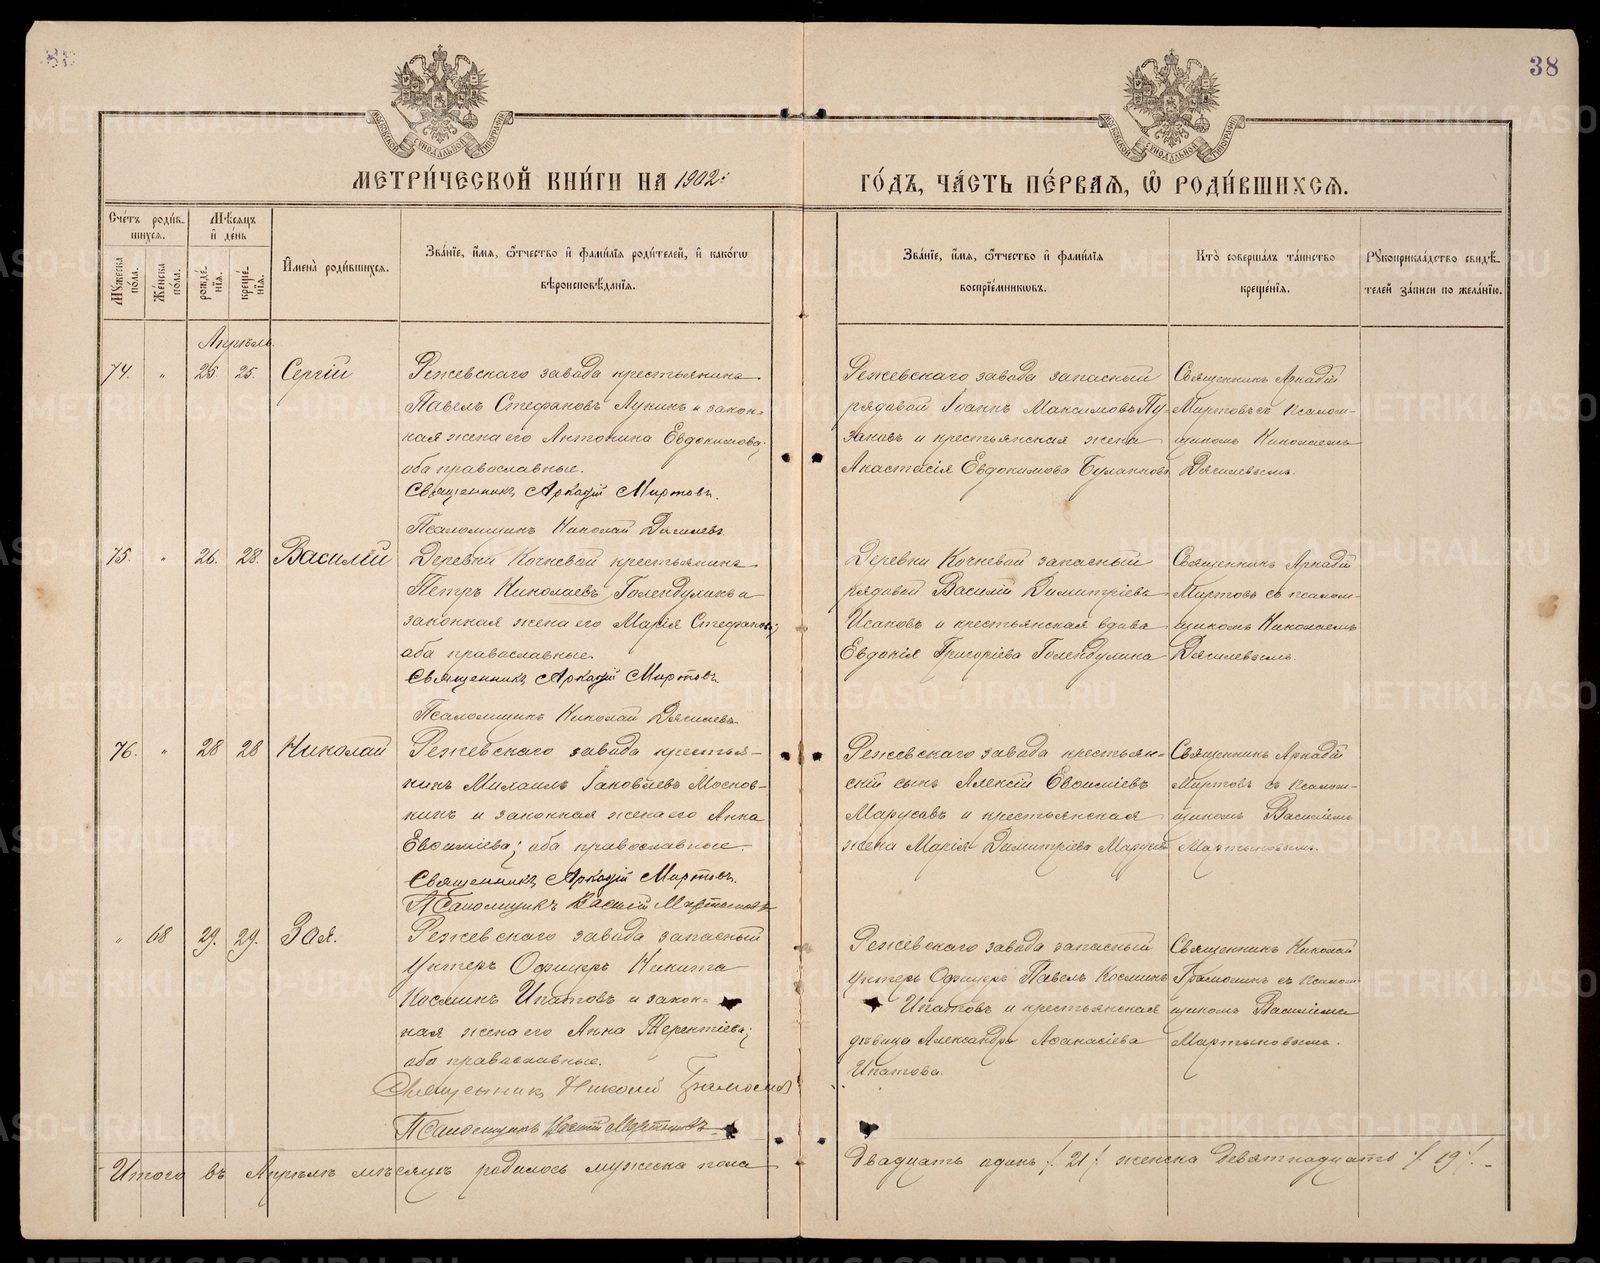 38
МЕТРИ́ЧЕСКОЙ КНИ́ГИ НА 1902:
ГО́ДЪ, ЧА́СТЬ ПЕ́РВАѦ, Ѽ РОДИ́ВШИХСѦ.
Сче́тъ роди́в-
шихсѧ.
Мѣ́сѧцъ
и҆ де́нь
Мꙋ́жеска по́ла.
Же́нска по́ла.
рожде́-
нїѧ.
креще́-
нїѧ.
И҆мена̀ роди́вшихсѧ.
Зва́нїе, и҆́мѧ, ѻ҆́тчество и҆ фами́лїѧ роди́телей, и҆ како́гѡ
вѣроисповѣ́данїѧ.
Зва́нїе, и҆́мѧ, ѻ҆́тчество и҆ фами́лїѧ
воспрїе́мникѡвъ.
Кто̀ соверша́лъ та́инство
креще́нїѧ.
Рꙋкоприкла́дство свидѣ́-
телей за́писи по жела́нїю.
Апрѣль.
74. " 25 25. Сергій
Режевскаго завода крестьянинъ
Павелъ Стефановъ Лукинъ и закон-
ная жена его Антонина Евдокимова;
оба православные.
Священникъ Аркадій Миртовъ.
Псаломщикъ Николай Дягилевъ
Режевскаго завода запасный
рядовой Іоаннъ Максимовъ Пу-
зановъ и крестьянская жена
Анастасія Евдокимова
Священникъ Аркадій
Миртовъ съ псалом-
щикомъ Николаемъ
Дягилевымъ.
75. " 26. 28. Василій
Деревни Кочневой крестьянинъ
Петръ Николаевъ Голендухинъ и
законная жена его Марія Стефанова;
оба православные.
Священникъ Аркадій Миртовъ
Псаломщикъ Николай Дягилевъ
Деревни Кочневой запасный
рядовой Василій Димитріевъ
Исаковъ и крестьянская вдова
Евдокія Григоріева Голендухина
Священникъ Аркадій
Миртовъ съ псалом-
щикомъ Николаемъ
Дягилевымъ.
76. " 28 28 Николай
Режевскаго завода крестья-
нинъ Михаилъ Іаковлевъ Москов-
кинъ и законная жена его Анна
Евѳиміева; оба православные.
Священникъ Аркадій Миртовъ.
Псаломщикъ Василій Мартыновъ
Режевскаго завода крестьян-
скій сынъ Алексій Евѳиміевъ
и крестьянская
жена Марія Димитріева
Священникъ Аркадій
Миртовъ съ псалом-
щикомъ Василіемъ
Мартыновымъ.
" 68 29. 29. Зоя.
Режевскаго завода запасный
Унтеръ Офицеръ Никита
Косминъ Ипатовъ и закон-
ная жена его Анна Терентіева;
оба православные.
Священникъ Николай
Псаломщикъ Василій Мартыновъ
Режевскаго завода запасный
унтеръ Офицеръ Павелъ Косминъ
Ипатовъ и крестьянская
дѣвица Александра Аѳанасіева
Ипатова.
Священникъ Николай
съ псалом-
щикомъ Василіемъ
Мартыновымъ.
Итого въ Апрѣлѣ мѣсяцѣ родилось мужеска пола
двадцать одинъ /. 21 /. женска девятнадцать /. 19 /. –
METRIKI.GASO-URAL.RU